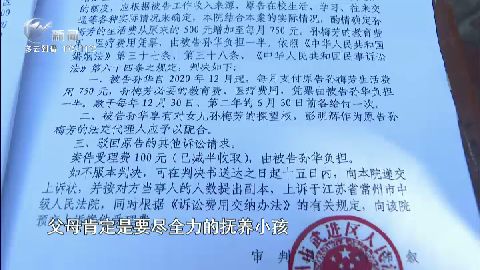 的额度,应根据被告工作收入来源、原告在校生活、学习、往来交
通等各种实际情况来确定。本院结合本案的实际情况,酌情确定孙
梅芳的生活费从原来的500元增加至每月750元,孙梅芳的教育费
医疗费用凭单,由被告孙华负担一半。依照《中华人民共和国
婚姻法》第三十七条、第三十八条,《中华人民共和国民事诉讼
法》第六十四条之规定,判决如下:
一、被告孙华自2020年12月起,每月支付原告孙梅芳生活费
用750元,孙梅芳必要的教育费、医疗费用,凭票由被告孙华负担
一半,款于每年12月30日、第二年的6月30日前各给付一次。
二、被告孙华享有对女儿孙梅芳的探望权,彭明辉作为原告孙
梅芳的法定代理人应予以配合。
三、驳回原告的其他诉讼请求。
案件受理费100元(已减半收取),由被告孙华负担。
如不服本判决,可在判决书送达之日起十五日内,向本院递交
上诉状,并按对方当事人的人数提出副本,上诉于江苏省常州市中
级人民法院,同时根据《诉讼费用交纳办法》的有关规定,向该院
预
父母肯定是要尽全力的抚养小孩
审 判
武进区人民法
叙
新闻